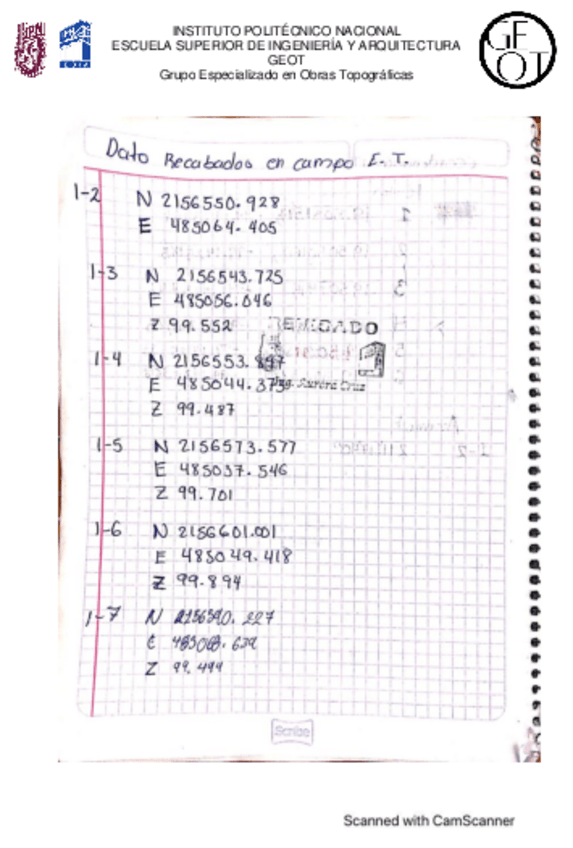 INSTITUTO POLITÉCNICO NACIONAL
ESCUELA SUPERIOR DE INGENIERÍA Y ARQUITECTURA
GEOT
Grupo Especializado en Obras Topográficas
GEOT
Dato Recabados en campo E. T.
1-2 N 2156550.928
E 485064.405
1-3 N 2156543.725
E 485056.046
Z 99.552
REVISADO
1-4 N 2156553.
E 485044.375
Ing. Aurora Cruz
Z 99.487
1-5 N 2156573.577
E 485037.546
Z 99.701
1-6 N 2156601.001
E 485049.418
Z 99.894
1-7 N 2156590.227
E
Z 99.499
Scribe
Scanned with CamScanner